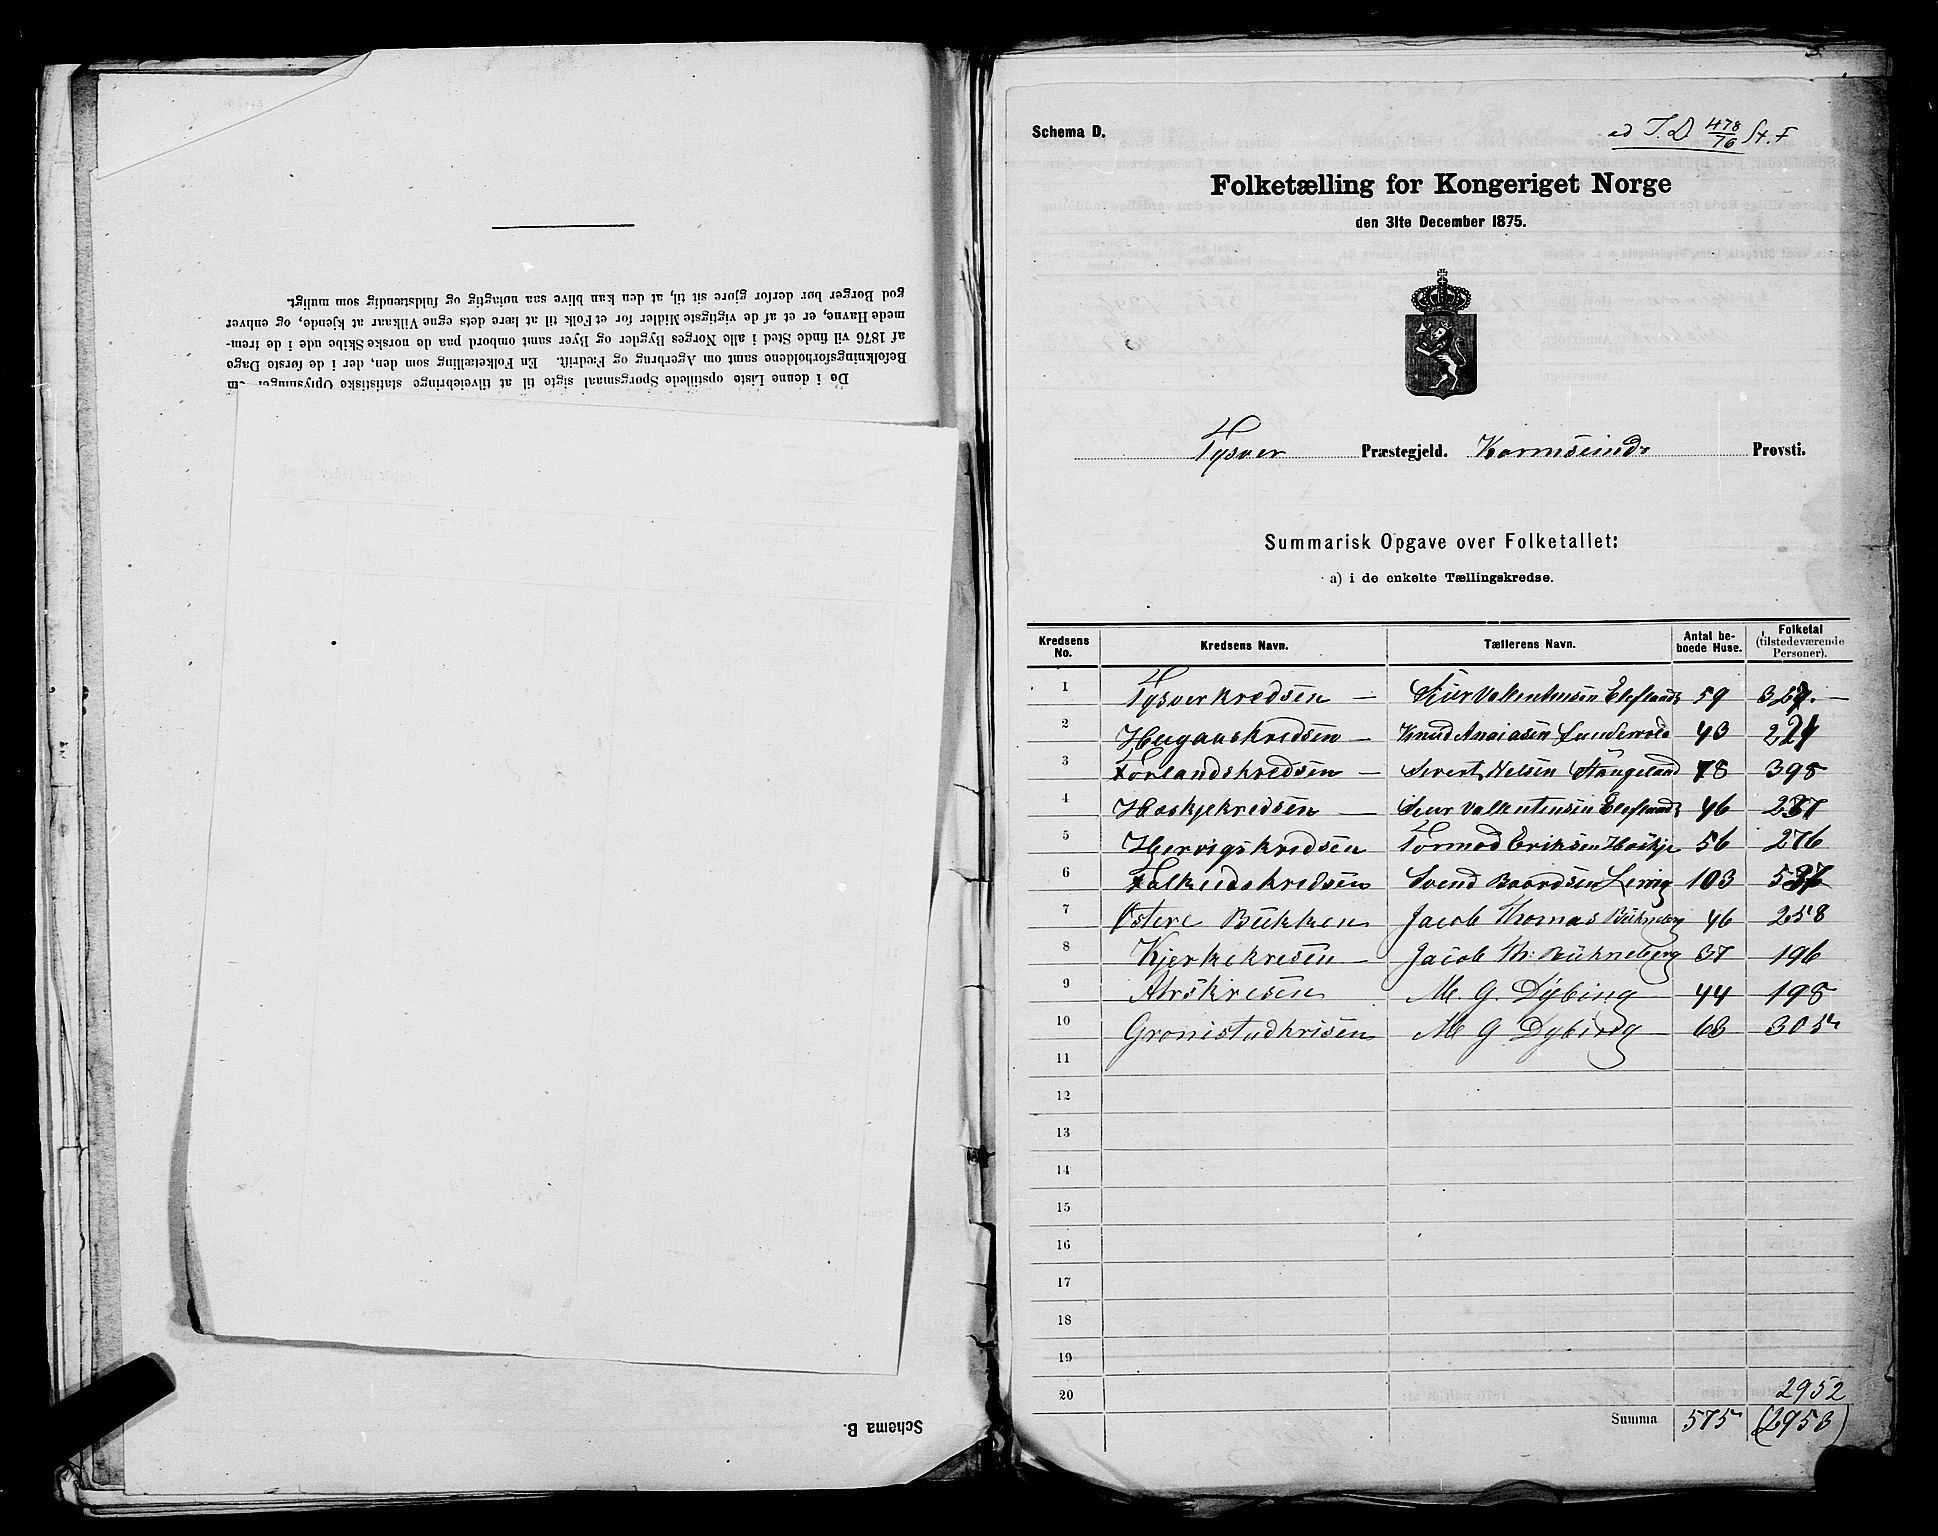 De i denne Liste opstillede Spørgsmaal sigte til at tilveiebringe statistiske Oplysninger om
Befolkningsforholdene samt om Agerbrug og Fædrift. En Folketælling som den, der i de første Dage
af 1876 vil finde Sted i alle Norges Bygder og Byer samt ombord paa de norske Skibe ude i de frem-
mede Havne, er et af de vigtigste Midler for et Folk til at lære dets egne Vilkaar at kjende, og enhver
god Borger bør derfor gjøre sit til, at den kan blive saa nøiagtig og fuldstændig som muligt.
Schema B.
Schema D.
ad J.D. 478/76 St. F
Folketælling for Kongeriget Norge
den 31te December 1875.
Tysvær Præstegjeld. Karmsunds Provsti.
Summarisk Opgave over Folketallet:
a) i de enkelte Tællingskredse.
Kredsens No. Kredsens Navn. Tællerens Navn. Antal beboede Huse. Folketal (tilstedeværende Personer).
1 Tysverkredsen — Siur Valentinsen Eleflaadt 59 327.
2 Heegaaskredsen — Knud Anaiasen 43 221
3 Førlandskredsen — Sivert Nelsen Stangeland 78 398
4 Høskjekredsen — Siur Valentinsen Eleflaadt 46
5 Hervigskredsen Tormod Eriksen Høskje 56 276
6 Falkeidskredsen Svend Baardsen Lervig 103
7 Østere Bükken Jacob Thomas Bükneberg 46 258
8 Kjerkekresen — Jacob Th: Bükneberg 37 196
9 M. G. Dybing 44 198
10 M G Dybing 63 305
11
12
13
14
15
16
17
18
19
20 2952
Summa 575 (2953)